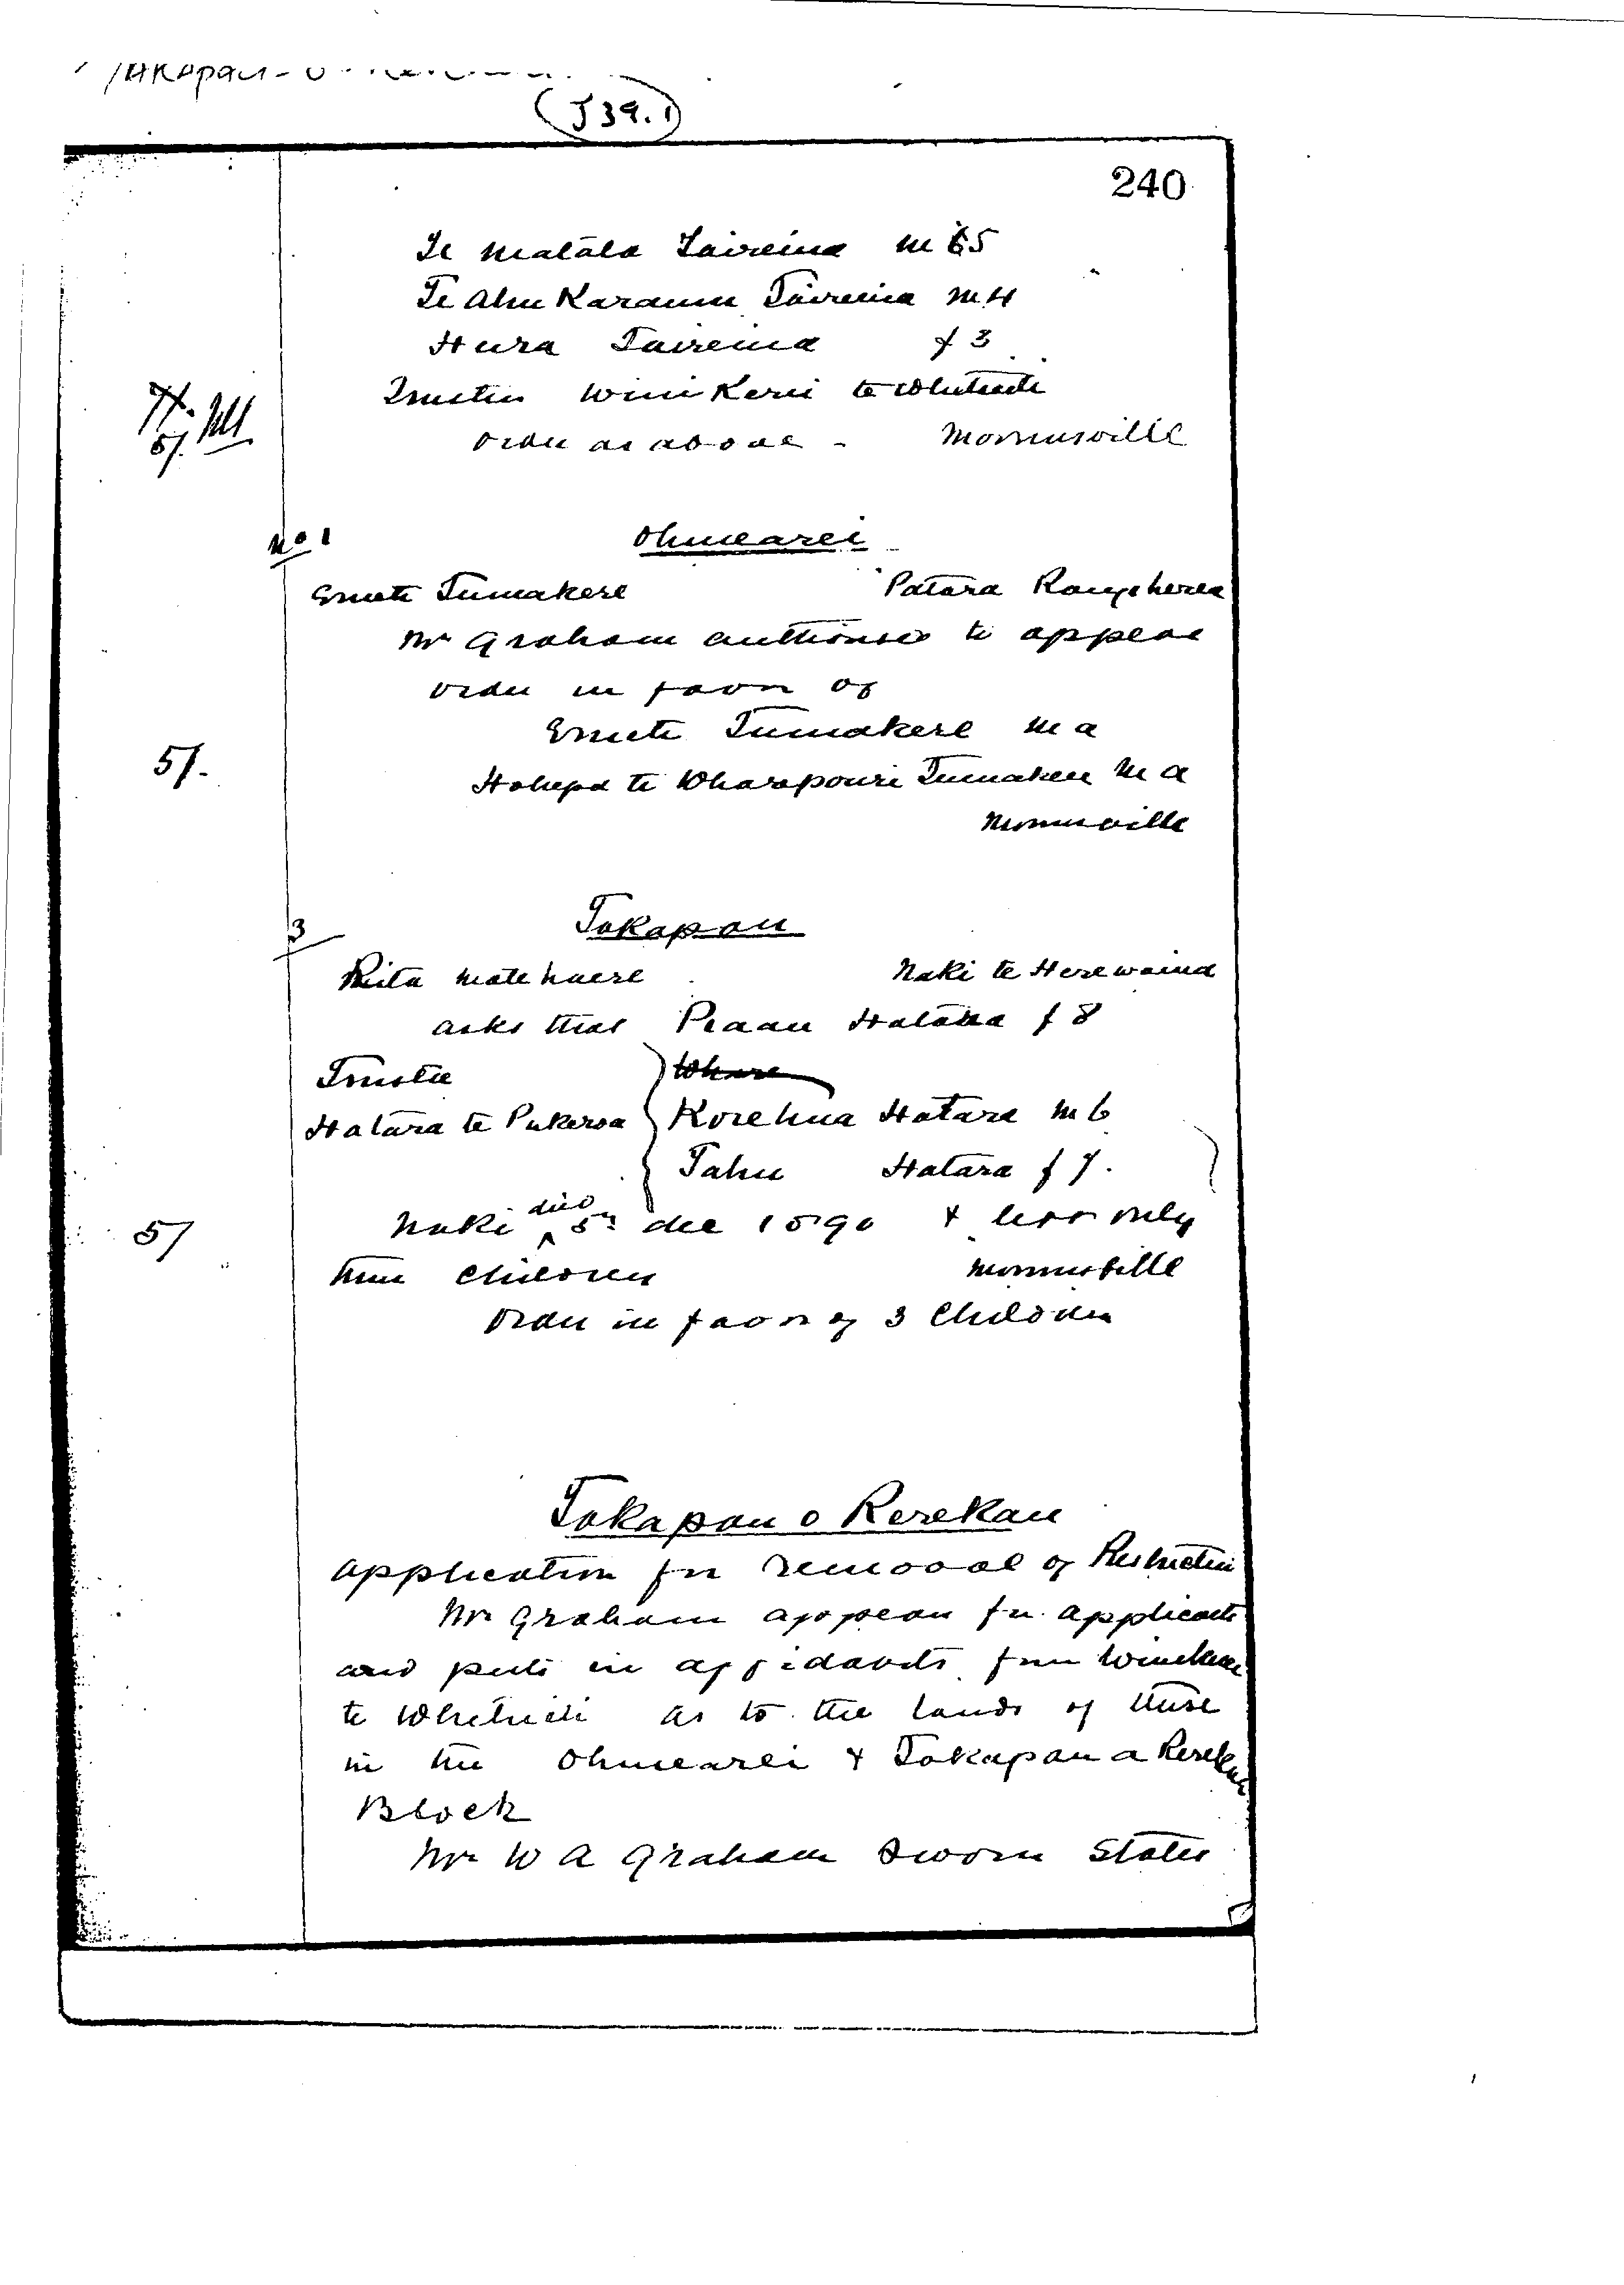 (J 39.1)
240
Te Matata Taireina M 65
Te Ahu Karamu Taireina M 4
Hura Taireina f 3
Trustee Wini Kerei te Whetuiti
Order as above - Morrinsville
5/.
No 1 Ohinearei
Erueti Tumakere Patara Rangiherea
Mr Graham authorised to appear
Order in favor of
Erueti Tumakere M a
5/-
Hohepa te Wharepouri Tumakere M a
Morrinsville
3 Takapau
Rista Matehaere Naki te Herewaina
asks that Peaau Hatara f 8
Trustee
Hatara te Pukeroa Korehua Hatara M 6
Tahu Hatara f 7.
Naki died 5th Dec 1890 & left only
5/
three children Morrinsville
Order in favor of 3 Children
Takapau o Rerekau
Application for removal of Restriction
Mr Graham appears for applicants
and puts in affidavits from
te Whetuiti as to the lands of those
in the Ohinearei & Takapau a Rerekau
Block
Mr W A Graham Sworn States